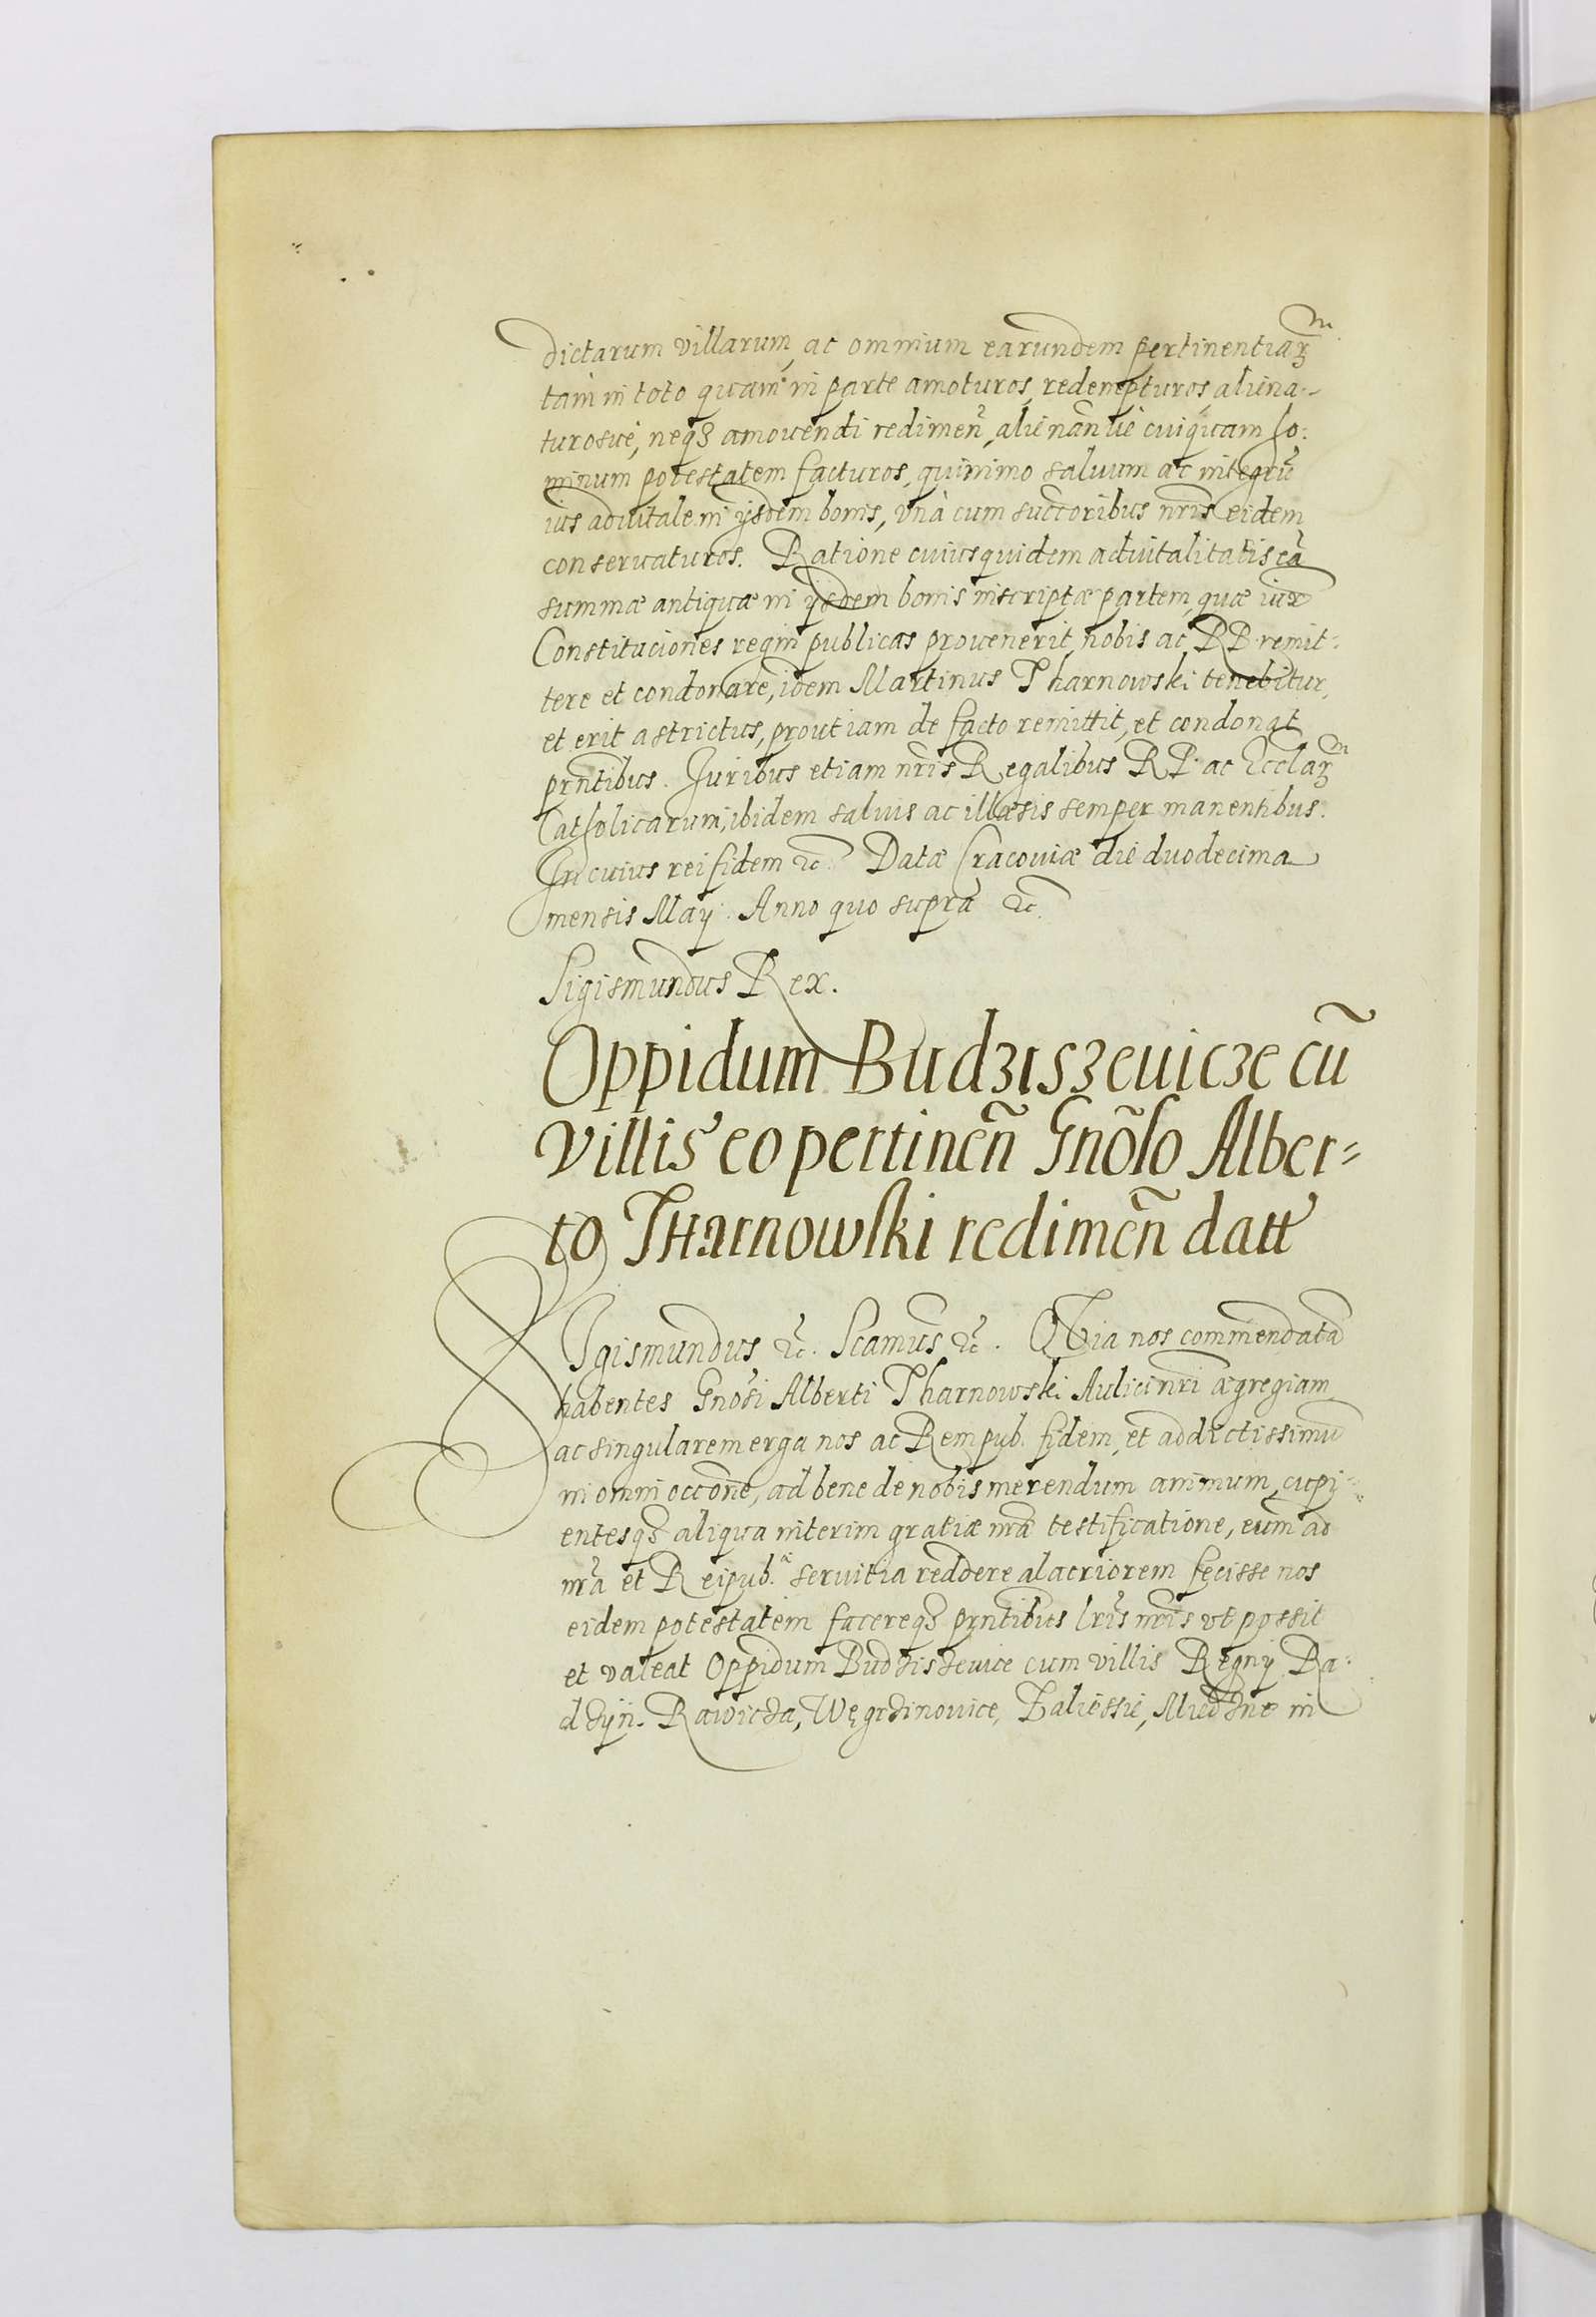 dictarum villarum, ac omnium earundem pertinentiarꝫ
tàm in toto quam in parte amoturos, redempturos, aliena-
turosuè, neqꝫ amouendi redimen̄, alienan̄uè cuiquam ho-
minum potestatem facturos, quinimo saluum ac integrũ
ius aduitale in ijsdem bonis, vnà cum succ̃oribus nr̃is eidem
conseruaturos. Ratione cuius quidem aduitalitatis eã
summæ antiquæ in ijsdem bonis inscriptæ partem, quæ iux̃
Constituciones regni publicas prouenerit, nobis ac RP. remit-
tere et condonare, idem Martinus Tharnowski tenebitur,
et erit astrictus, prout iam de facto remittit, et condonat
prñtibus. Juribus etiam nr̃is Regalibus RP. ac Ecclarꝫ
Catholicarum, ibidem saluis ac illæsis semper manentibus.
In cuius rei fidem ꝛc. Datæ Cracouiæ die duodecima
mensis Maij. Anno quo supra ꝛc.
Sigismundus Rex.
Oppidum Budziszeuicze cũ
villis eo pertineñ Gnõso Alber-
to Tharnowski redimeñ datt
SIgismundus ꝛc. Scamus ꝛc. QVia nos commendatã
habentes Gnõsi Alberti Tharnowski Aulici nr̃i ægregiam
ac singularem erga nos ac Rempub. fidem, et addictissimũ
in omni occõne, ad bene de nobis merendum animum, cupi-
entesqꝫ aliqua interim gratiæ nr̃æ testificatione, eum ad
nr̃a et Reipub.æ seruitia reddere alacriorem fecisse nos
eidem potestatem facereqꝫ prñtibus lr̃is nr̃is vt possit
et valeat Oppidum Budziszeuice cum villis Regny Ra-
dzyn. Rawicza, Węgrzinouice, Zaliessie, Miedzne in